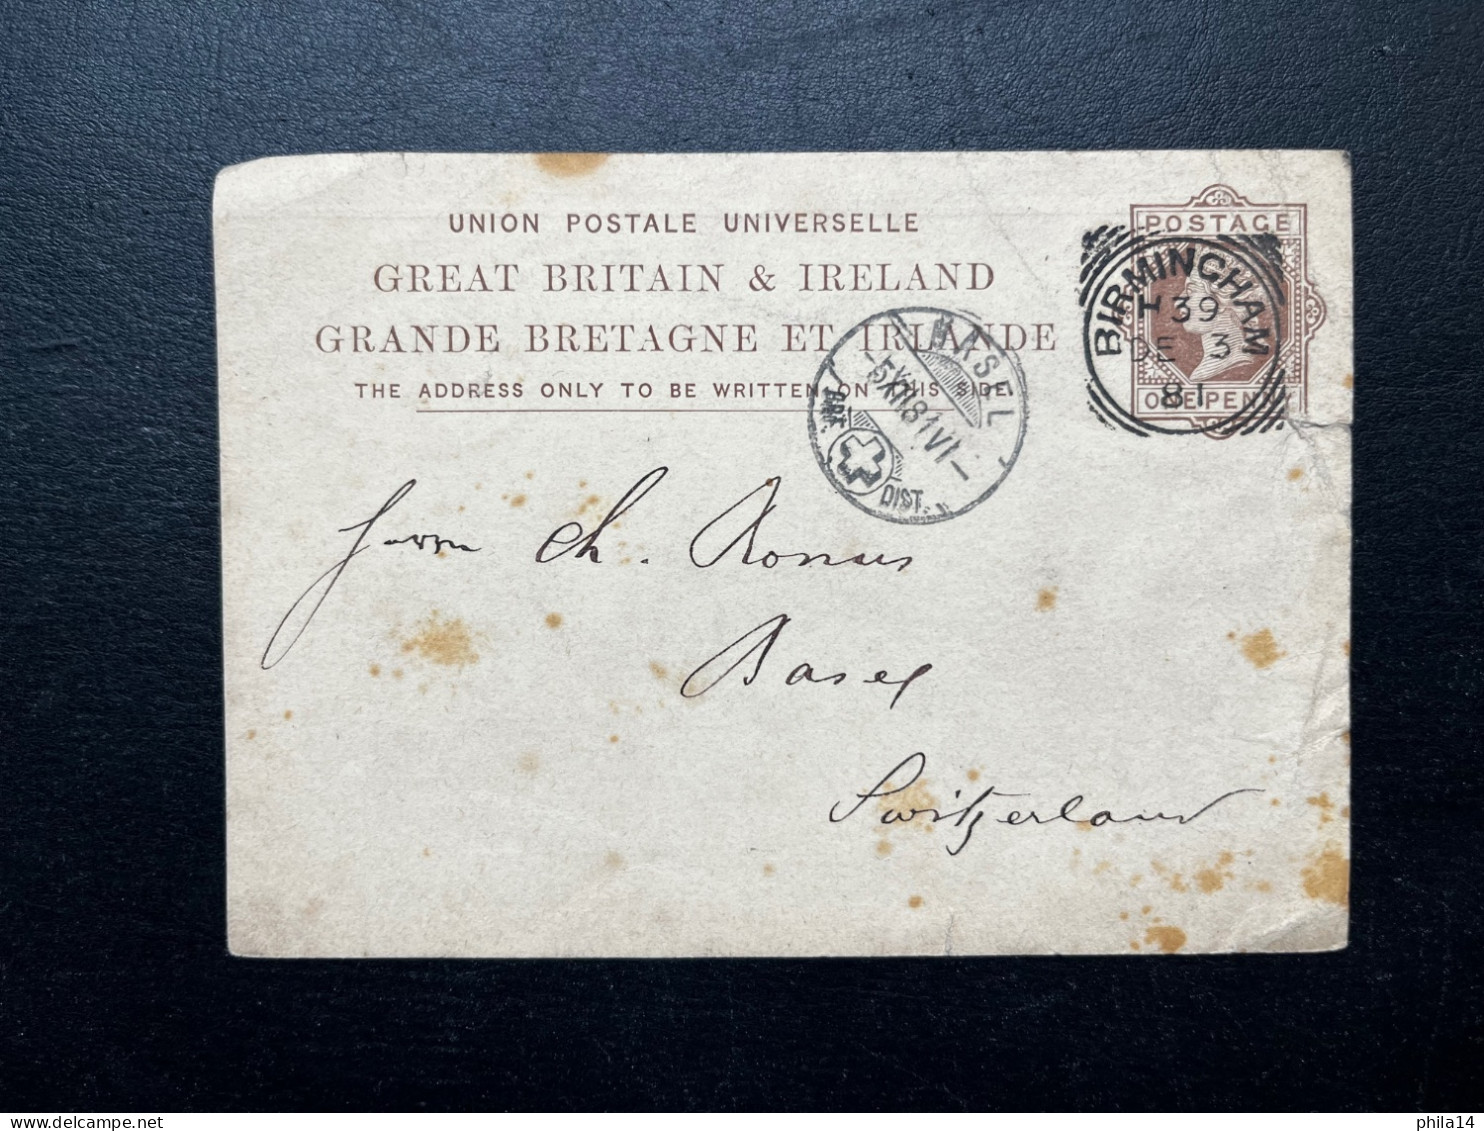 UNION POSTALE UNIVERSELLE
GREAT BRITAIN & IRELAND
GRANDE BRETAGNE ET IRLANDE
THE ADDRESS ONLY TO BE WRITTEN ON THIS SIDE.
POSTAGE
ONE PENNY
BIRMINGHAM
H 39
DE 3
81
BASEL
-5 XII 81 VI-
BRF. DIST.
Herrn Ch. Ronus
Basel
Switzerland
delcampe.net
phila14